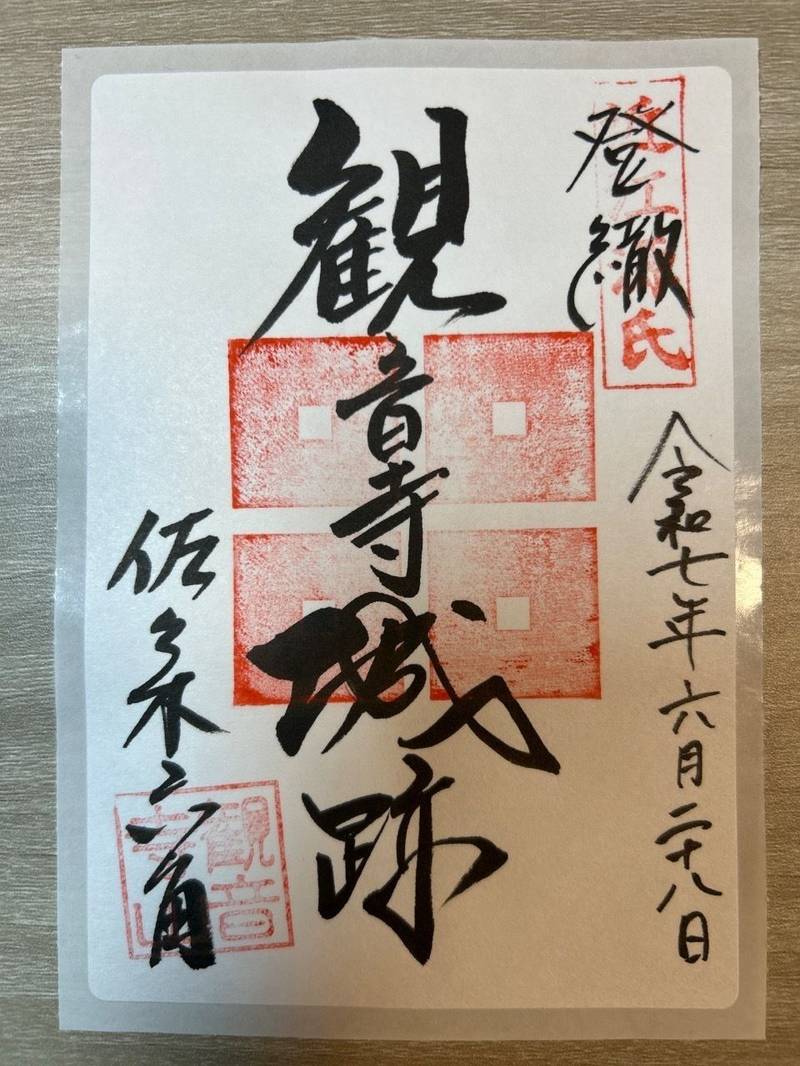 登繖
近江源氏
令和七年六月二十八日
観音寺城跡
佐々木六角
観音
寺山